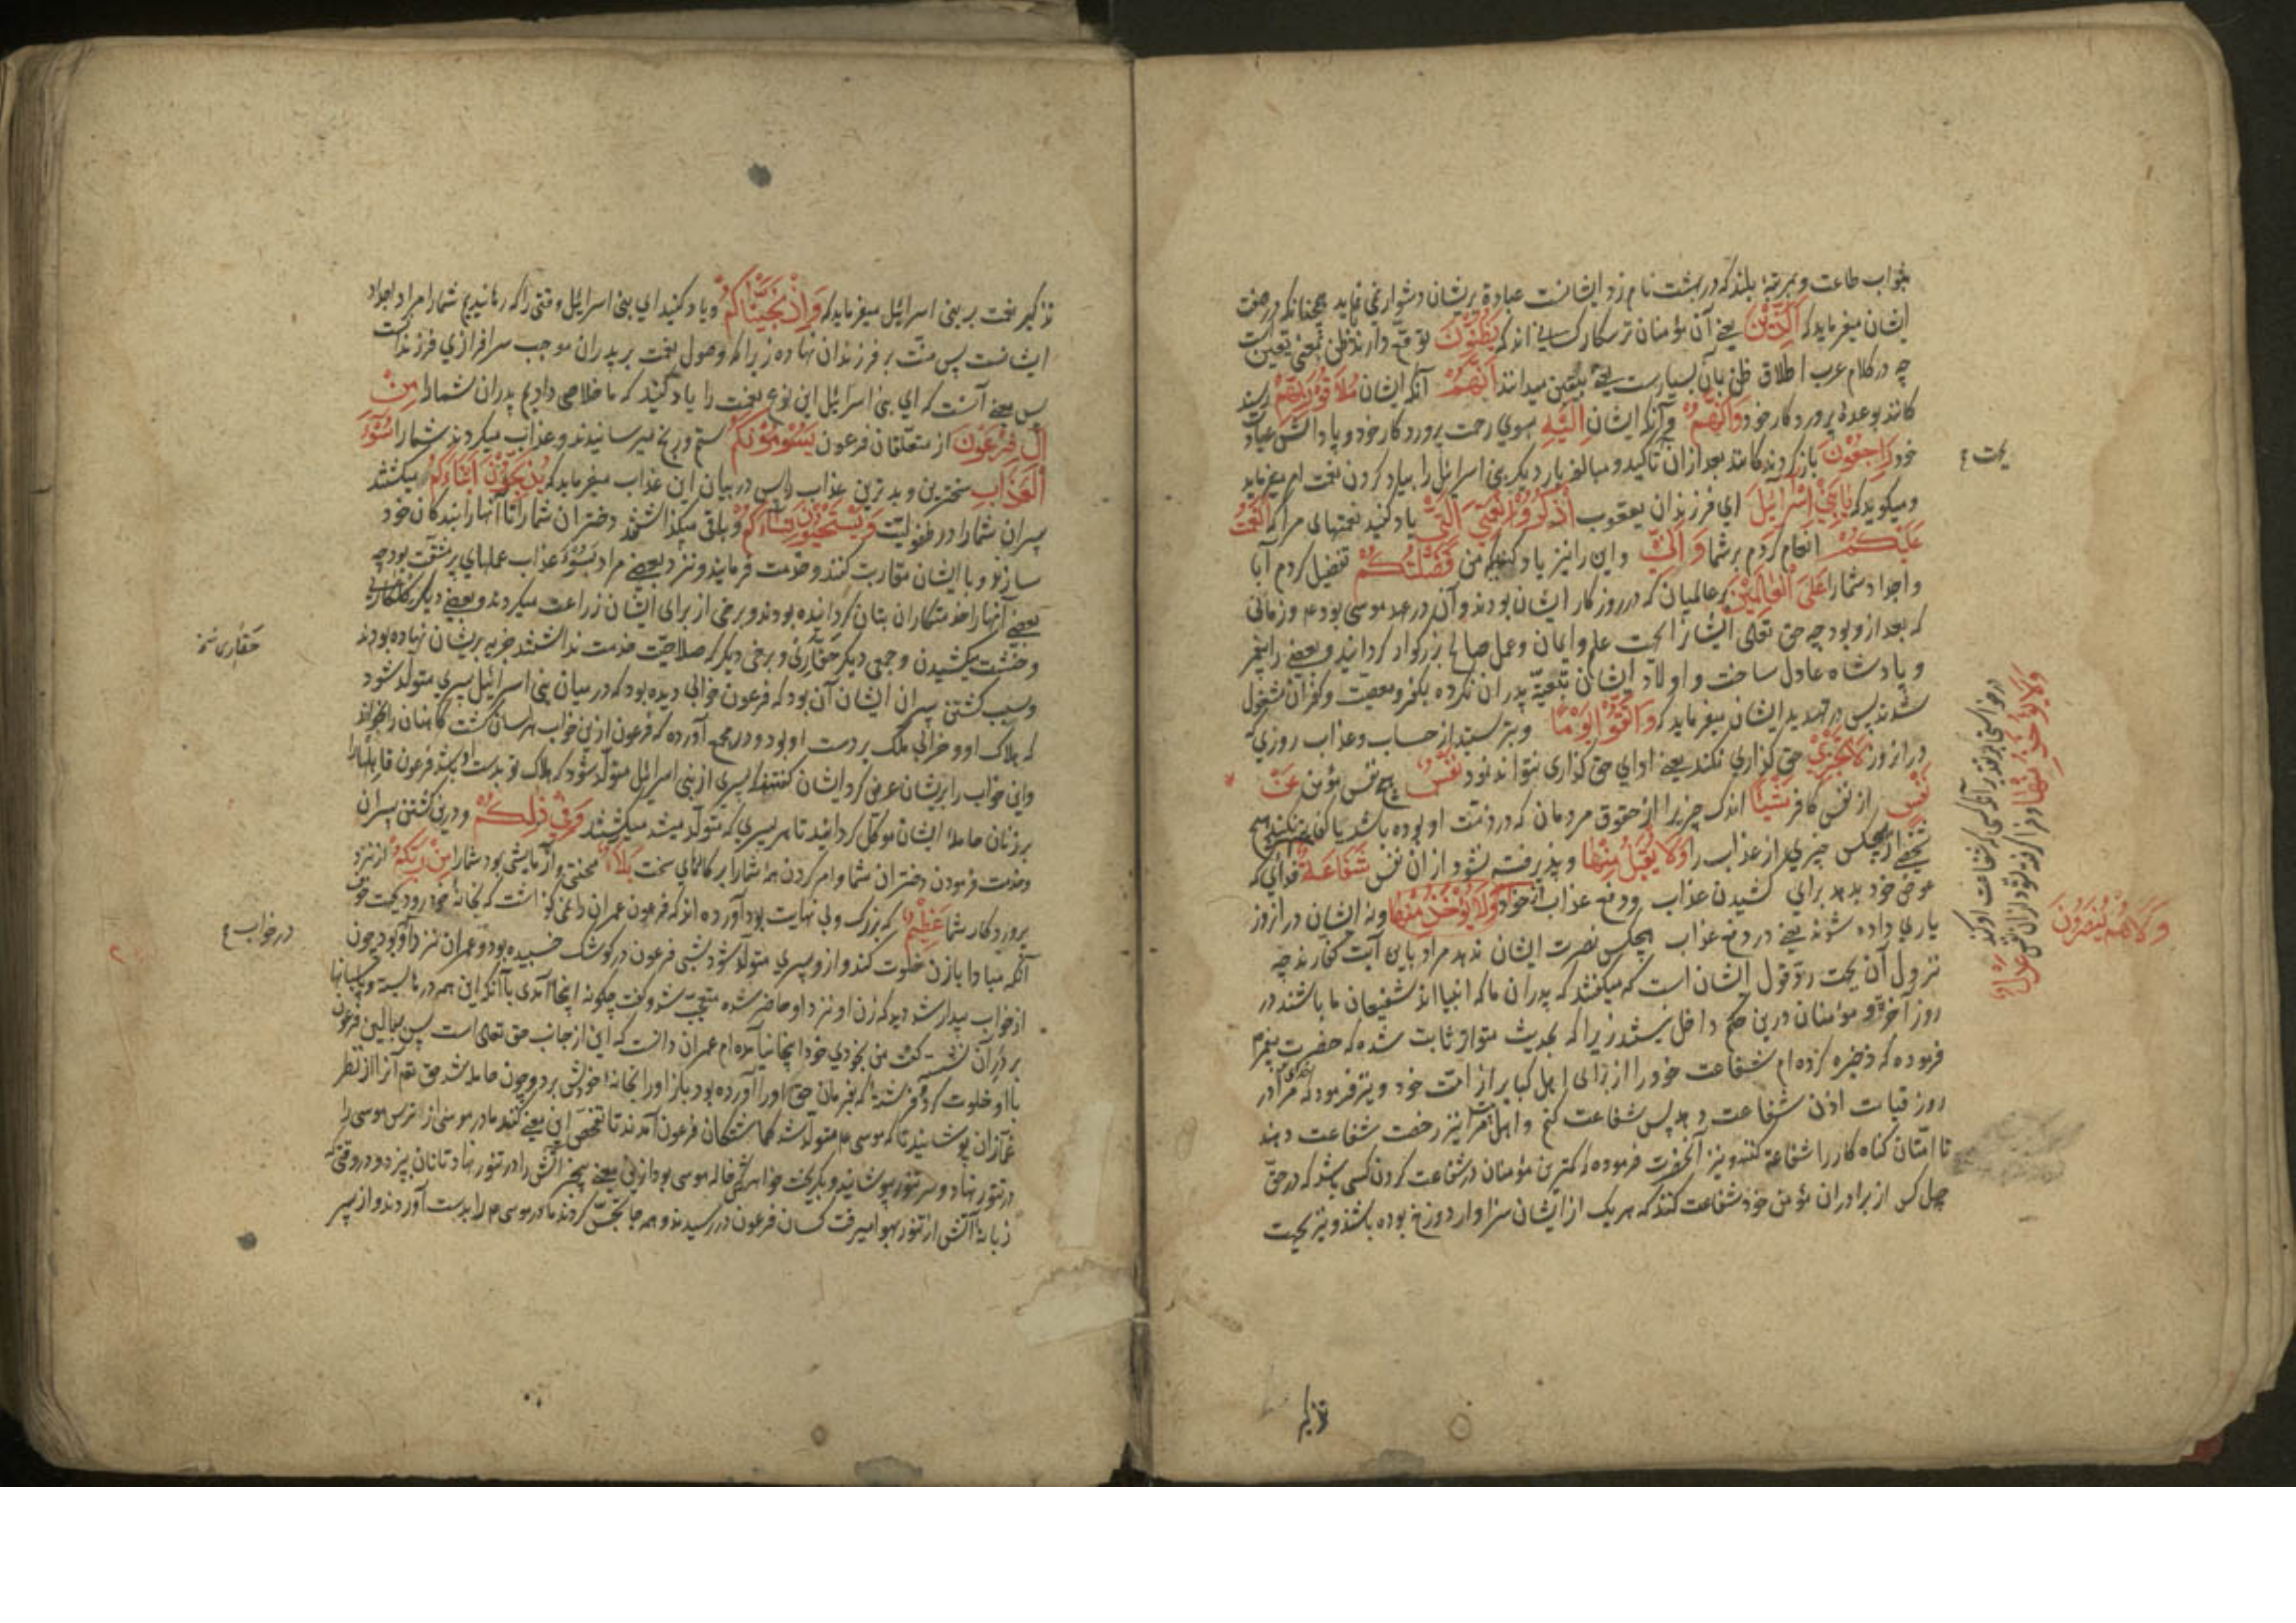 بثواب طاعت و بمرتبهٔ بلند که در بهشت نام زد ایشانست عبادة بریشان دشوار نمی نماید همچنانکه در صفت
ایشان میفرماید که اَلَّذِیْنَ یعنے آن مؤمنان ترسکار کسانے اند که یَظُنُّوْنَ توقّع دارند ظن بمعنی یقین است
چه در کلام عرب اطلاق ظن بآن بسیارست یعنے بیقین میدانند اَنَّهُمْ آنکه ایشان مُلَاقُوْا رَبِّهِمْ رسند
کانند بوعدهٔ پروردکار خود وَاَنَّهُمْ و آنکه ایشان اِلَیْهِ بسوی رحمت پروردکار خود و پاداش عبادت
خود رَاجِعُوْنَ بازکردندکانند بعد از آن تاکید و مبالغه بار دیکر بنی اسرائیل را بیاد کردن نعمت امر میفرماید
و میکوید که یَابَنِیْ اِسْرَائِیْلَ ای فرزندان یعقوب اُذْکُرُوْا نِعْمَتِیَ الَّتِیْ یاد کنید نعمتهای مرا که اَنْعَمْتُ
عَلَیْکُمْ انعام کردم بر شما وَ اَنِّیْ و این را نیز یاد کنید که من فَضَّلْتُکُمْ تفضیل کردم آبا
و اجداد شمارا عَلَی الْعَالَمِیْنَ بر عالمیان که در روزکار ایشان بودند و آن در عهد موسی بود عم و زمانی
که بعد ازو بود چه حق تعالی ایشانرا بجهت علم و ایمان و عمل صالح بزرکوار کردانید و بعضے را پیغمبر
و پادشاه عادل ساخت و اولاد ایشان تبعیّة پدران نکرده بکفر و معصیت و کفران مشغول
شدند پس در تهدید ایشان میفرماید که وَاتَّقُوْا یَوْمًا و بترسید از حساب و عذاب روزی که
در ان روز لَا تَجْزِیْ حق کزاری نکند یعنے ادای حق کذاری نتواند نمود نَفْسٌ هیچ نفس مؤمن عَنْ
نَفْسٍ از نفس کافر شَیْئًا اندک چیزیرا از حقوق مردمان که در ذمّت او بوده باشد یا کفایت نکند هیچ
نفسے از هیچکس چیزی از عذاب را وَلَا یُقْبَلُ مِنْهَا و پذیرفته نشود از ان نفس شَفَاعَةٌ فدائی که
عوض خود بدهد برای کشیدن عذاب و دفع عذاب از خود وَلَا یُؤْخَذُ مِنْهَا و نه ایشان در ان روز
یاری داده شوند یعنے در دفع عذاب هیچکس نصرت ایشان ندهد مراد باین آیت کفارند چه
نزول آن بجهت ردّ قول ایشان است که میکفتند که پدران ما که انبیا اند شفیعان ما باشند در
روز آخرة و مؤمنان درین حکم داخل نیستند زیرا که بحدیث متواتر ثابت شده که حضرت پیغمبر عم
فرموده که ذخیره کرده ام شفاعت خود را از برای اهل کبایر از امّت خود و نیز فرمود که مرا در
روز قیامت اذن شفاعت دهد پس شفاعت کنم و اهل را نیز رخصت شفاعت دهند
تا امّتان کناه کار را شفاعة کنند و نیز آنحضرت فرموده که کمترین مؤمنان در شفاعت کردن کسی باشد که در حق
چهل کس از برادران مؤمن خود شفاعت کند که هر یک از ایشان سزاوار دوزخ بوده باشند و نیز بجهت
وَلَا هُمْ یُنْصَرُوْنَ
تذکیر
تذکیر نعمت بر بنی اسرائیل میفرماید که وَاِذْ نَجَّیْنَاکُمْ و یاد کنید ای بنی اسرائیل وقتی را که رهانیدیم شمارا مراد اجداد
ایشانست پس منّت بر فرزندان نهاده زیرا که وصول نعمت بر پدران موجب سرافرازی فرزندانست
پس معنے آنست که ای بنی اسرائیل این نوع نعمت را یاد کنید که ما خلاصی دادیم پدران شمارا مِنْ
اٰلِ فِرْعَوْنَ از متعلقان فرعون یَسُوْمُوْنَکُمْ ستم و رنج میرسانیدند و عذاب میکردند شمارا سُوْءَ
الْعَذَابِ سختترین و بدترین عذاب را پس در بیان این عذاب میفرماید که یُذَبِّحُوْنَ اَبْنَاءَکُمْ میکشتند
پسران شمارا در طفولیّت وَیَسْتَحْیُوْنَ نِسَاءَکُمْ و باقی میکذاشتند دختران شمارا تا آنها را بندکان خود
سازند و با ایشان مقاربت کنند و خدمت فرمایند و نزد بعضے مراد بسوء عذاب عملهای پر مشقّت بود چه
بعضے آنها را خدمتکاران بتان کردانیده بودند و برخی از برای ایشان زراعت میکردند و بعضے دیکر
و خشت میکشیدن و جمعی دیکر و برخی دیکر که صلاحیّت خدمت نداشتند جزیه بریشان نهاده بودند
و سبب کشتن پسران ایشان آن بود که فرعون خوابی دیده بود که در میان بنی اسرائیل پسری متولّد شود
که هلاک او و خرابی ملک بر دست او بود و در مجمع آورده که فرعون ازین خواب هراسان کشت کاهنان را بخواند
و این خواب را بریشان عرض کرد ایشان کفتند پسری از بنی اسرائیل متولّد شود که هلاک تو بدست او باشد فرعون قابلهارا
بر زنان حاملهٔ ایشان موکّل کردانید تا هر پسری که متولّد میشد میکشتند وَفِیْ ذٰلِکُمْ و درین کشتن پسران
و خدمت فرمودن دختران شما و امر کردن همهٔ شمارا بر کارهای سخت بَلَاءٌ محنتی و آزمایشی بود شمارا مِنْ رَبِّکُمْ از نزد
پروردکار شما عَظِیْمٌ که بزرک و بی نهایت بود آورده اند که فرعون عمران را نمی کذاشت که بخانهٔ خود رود بجهت خوف
آنکه مبادا با زن خلوت کند و ازو پسری متولّد شود شبی فرعون در کوشک خسبیده بود و عمران نزد او بود چون
از خواب بیدار شد دید که زن او نزد او حاضر شده متعجّب شد و کفت چکونه اینجا آمدی با آنکه این همه درها بسته و پاسبانها
بر در آن نشسته کفت من بخودی خود اینجا نیامده ام عمران دانست که این از جانب حق تعالی است پس ببالین فرعون
با او خلوت کرد و فرشتهٔ که بفرمان حق او را آورده بود باز او را بخانهٔ خویش برد و چون حامله شد حق تعم آنرا از نظر
غمّازان پوشانید تا که موسی عم متولّد شد کماشتکان فرعون آمدند تا تفحّص این معنے کنند مادر موسی از ترس موسی را
در تنور نهاد و سر تنور بپوشانید و بکریخت خواهر آتش را در تنور نهاد تا نان بپزد و در وقتی که
زبانهٔ آتش از تنور بهوا میرفت کسان فرعون در رسیدند و همه جا تجسّس کردند مادر موسی عم را بدست آوردند و از پسر
در خواب